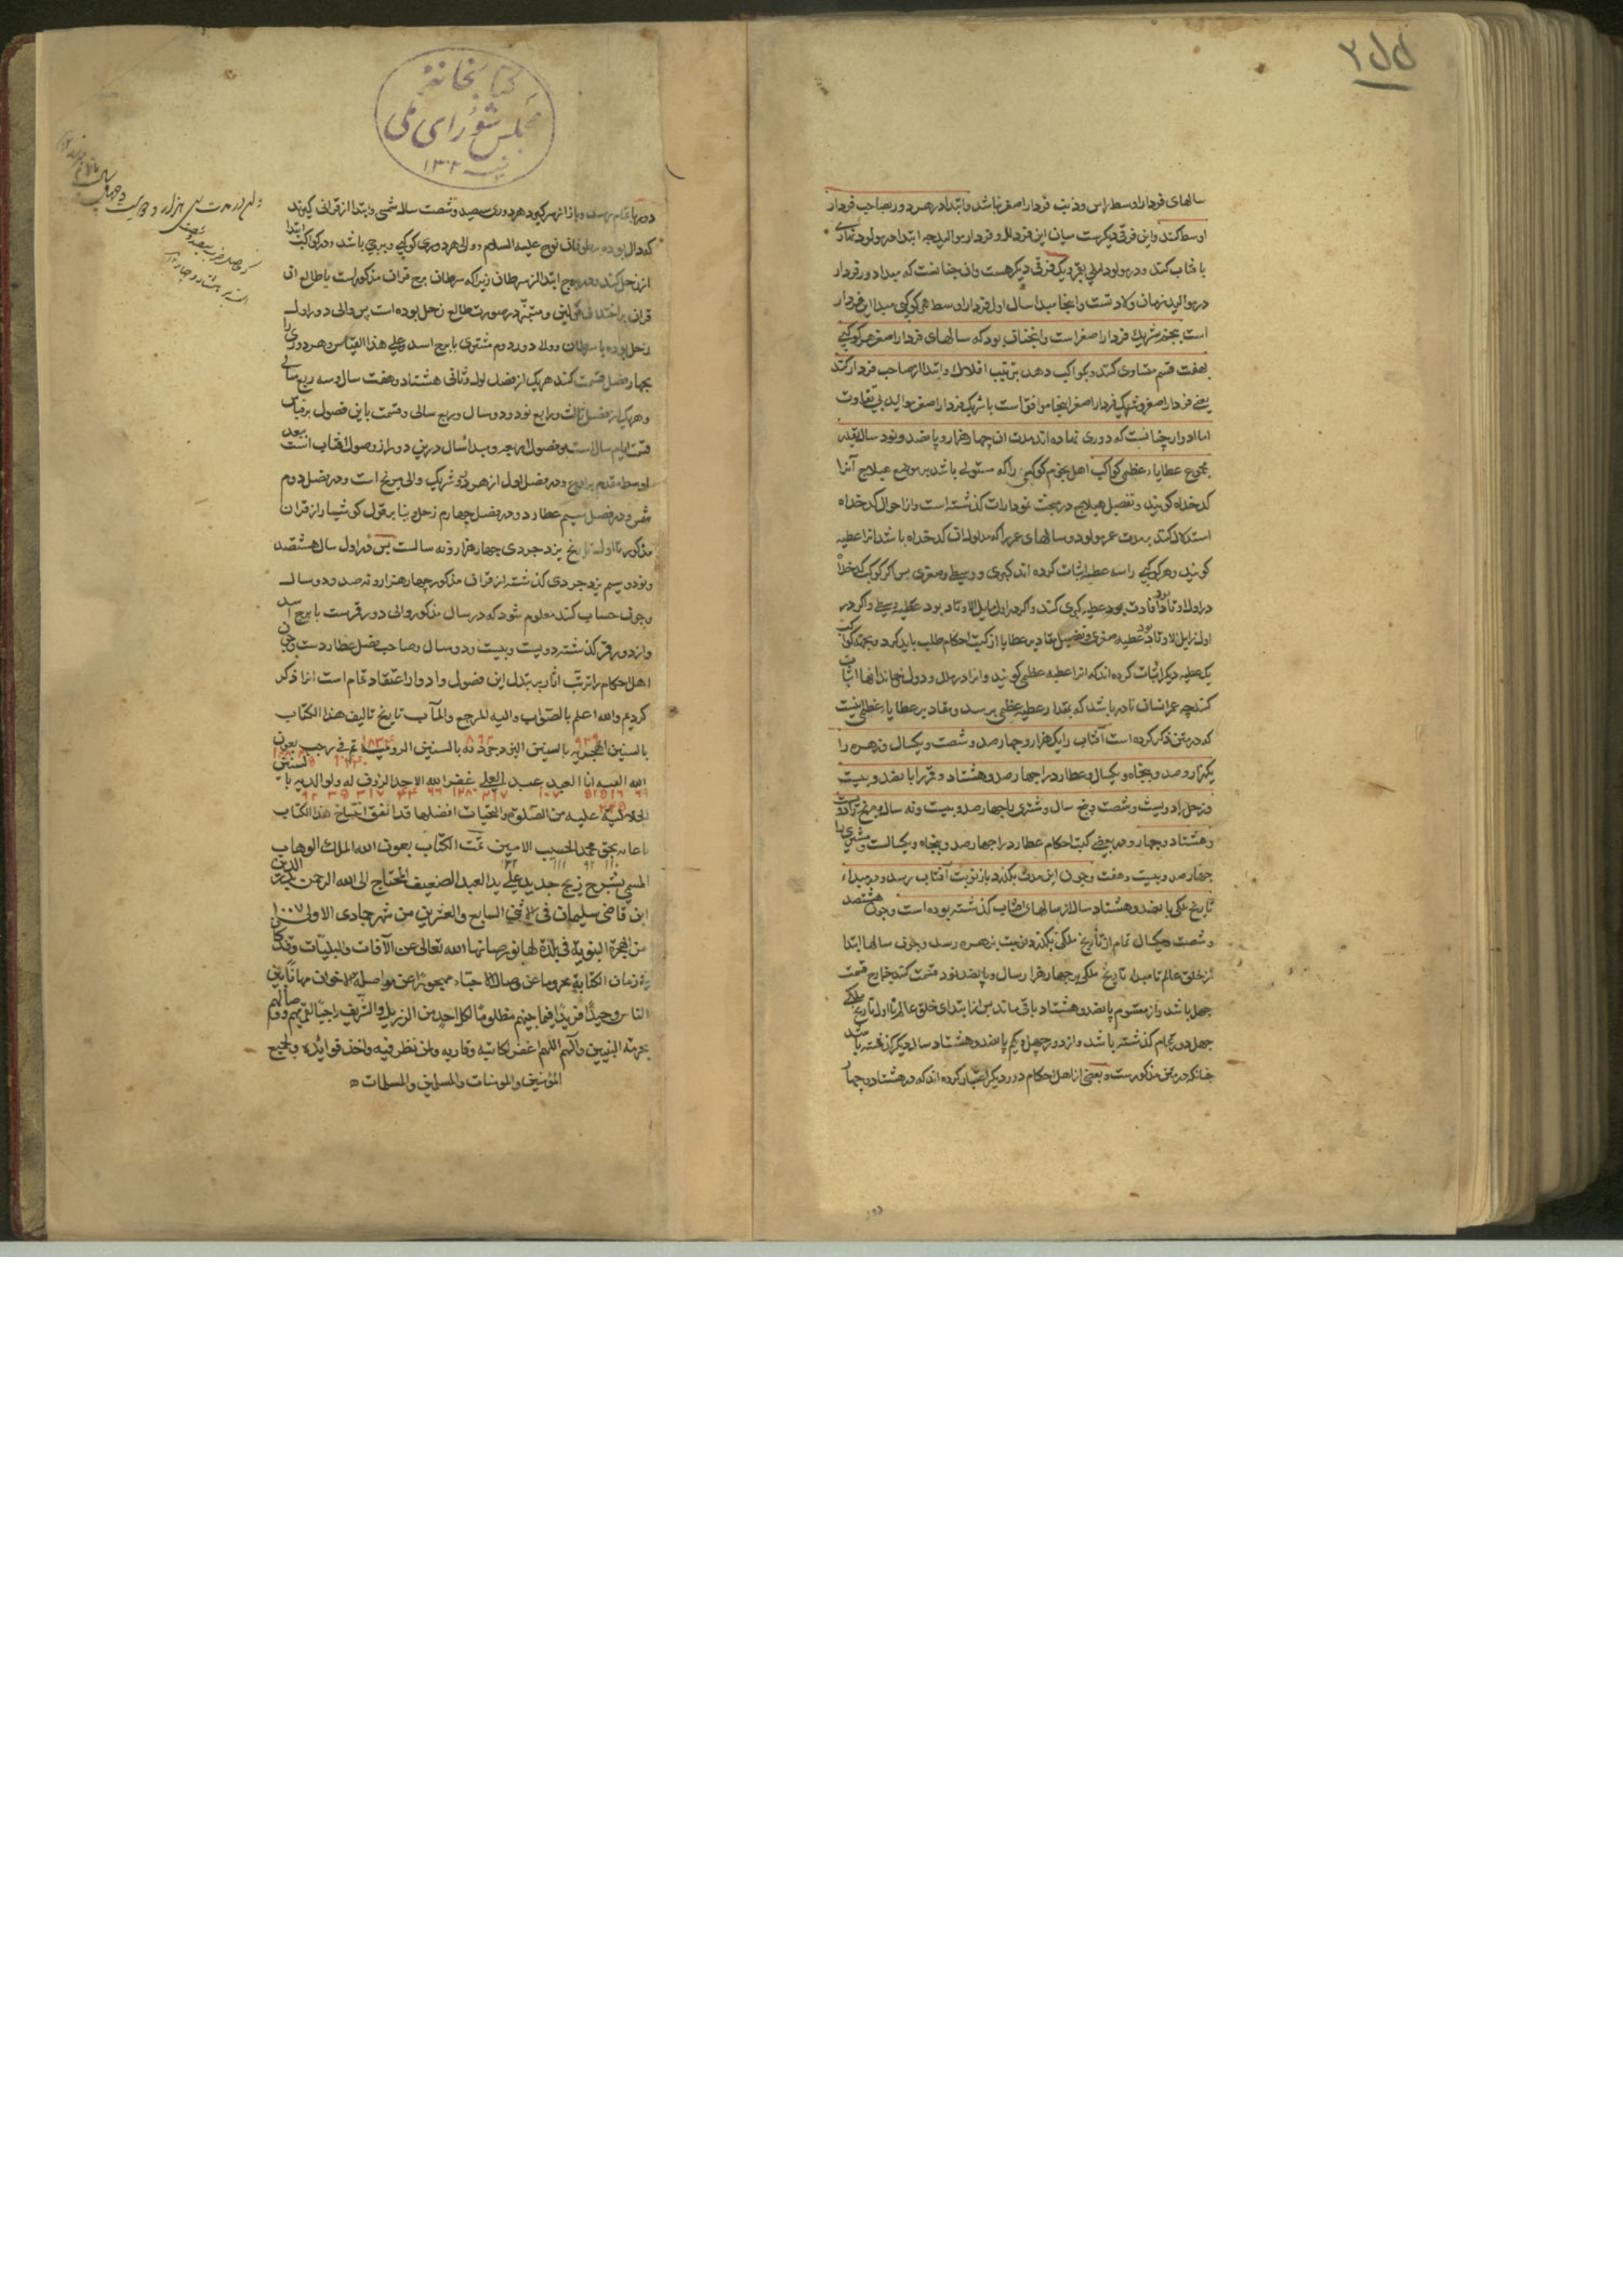 ۲۵۵
سالهای فردار اوسط راس و ذنب فردار اصغر نباشد و ابتدا در هر دور بصاحب فردار
اوسط کنند و این فرقی دیگرست میان این فردار و فردار موالید چه ابتدا در مولود نهاری
بآفتاب کنند و در مولود لیلی بقمر و یک فرقی دیگر هست و آن چنانست که مبدا دور فردار
در موالید زمان ولادتست و اینجا مبدا سال اول فردار اوسط هر کوکبی مبدا این فردار
است بعینه شریک فردار اصغر است و اینچنان بود که سالهای فردار اصغر هر کوکبی
بهفت قسم متساوی کنند و بکواکب دهند بترتیب افلاک و ابتدا از صاحب فردار کنند
یعنی فردار اصغر و شریک فردار اصغر اینجا موافق است با شریک فردار اصغر موالید بی تفاوت
اما ادوار چنانست که دوری نهاده اند مدت آن چهار هزار و پانصد و نود سال بقدر
مجموع عطایاء عظمی کواکب اهل نجوم کوکبی را که مستولی باشد بر موضع هیلاج آنرا
کدخداه گویند و تفصیل هیلاج در مبحث نمودارات گذشته است و از احوال کدخداه
استدلال کنند بر مدت عمر مولود و سالهای عمر را که مدلولات کدخداه باشد آنرا عطیه
گویند و هر کوکبی را سه عطیه اثبات کرده اند کبری و وسطی و صغری پس اگر کوکب کدخداه
در اول اوتاد بود عطیه کبری کند و اگر در اول مایل الاوتاد بود عطیه وسطی و اگر در
اول زایل الاوتاد بود عطیه صغری و تفصیل مقادیر عطایا از کتب احکام طلب باید کرد و بجهت کواکب
یک عطیه دیگر اثبات کرده اند که آنرا عطیه عظمی گویند و آنرا در ملل و دول
کنند چه عمر انسان نادر باشد که بمقدار عطیه عظمی برسد و مقادیر عطایاء عظمی اینست
که در متن ذکر کرده است آفتاب را یک هزار و چهار صد و شصت و یکسال و زهره را
یکهزار و صد و پنجاه و یکسال و عطارد را چهار صد و هشتاد و قمر را پانصد و بیست
و زحل را دویست و شصت و پنج سال و مشتری را چهار صد و بیست و نه سال و مریخ را دویست
و هشتاد و چهار و در بعضی کتب احکام عطارد را چهار صد و پنجاه و یکسالست و مشتری را
چهار صد و بیست و هفت و چون این مدت بگذرد باز نوبت آفتاب رسد و در مبداء
تاریخ ملکی پانصد و هشتاد سال از سالهای آفتاب گذشته بوده است و چون هشتصد
و شصت و یکسال تمام از تاریخ ملکی بگذرد نوبت بزهره رسد و چون سالها ابتدا
از خلق عالم تا مبداء تاریخ ملکی بر چهار هزار سال و پانصد نود قسمت کنند خارج قسمت
چهل باشد و از مقسوم پانصد و هشتاد باقی ماند پس از ابتدای خلق عالم تا اول تاریخ ملکی
چهل دور تمام گذشته باشد و از دور چهل و یکم پانصد و هشتاد سال دیگر گذشته باشد
چنانکه در متن مذکورست و بعضی از اهل احکام دور دیگر اعتبار کرده اند که در هشتاد و چهار
کتابخانهٔ
مجلس شورای ملی
سنه ۱۳۰۲
دورها تمام برسد و باز از سر گیرد هر دوری سیصد و شصت سال شمسی و ابتدا از قرانی گیرند
که دال بوده بطوفان نوح علیه السلام و والی هر دوری کوکبی و برجی باشد و در کواکب ابتدا
از زحل کنند و در بروج ابتدا از سرطان زیرا که سرطان برج قران مذکورست یا طالع آن
قران بر اختلاف قولین و مبتز در صورت طالع زحل بوده است پس والی دور اول
زحل بوده با سرطان و والی دور دوم مشتری با برج اسد و علی هذا القیاس و هر دوری را
بچهار فصل قسمت کنند هر یک از فصل اول و ثانی هشتاد و هفت سال و سه ربع سالی
و هر یک از فصل ثالث و رابع نود و دو سال و ربع سالی و قسمت باین فصول بر قیاس
قسمت ایام سالست بفصول اربعه و مبدا سال درین دور از وصول آفتاب است
و در فصل اول از هر دو شریک والی مریخ است و در فصل دوم
شمس و در فصل سیم عطارد و در فصل چهارم زحل و بنا بر قول کوشیار از قران
مذکور تا اول تاریخ یزدجردی چهار هزار و نه سالست پس در اول سال هشتصد
و نود و سیم یزدجردی گذشته از قران مذکور چهار هزار و نه صد و دو سال
و چون حساب کنند معلوم شود که در سال مذکور والی دور قمرست با برج اسد
و از دور قمر گذشته دویست و بیست و دو سال و صاحب فصل عطاردست و چون
اهل احکام را ترتب آثار بر تبدل این فصول و ادوار اعتقاد تمام است آنرا ذکر
کردیم والله اعلم بالصواب والیه المرجع والمآب تاریخ تالیف هذا الکتاب
بالسنین الهجریه بالسنین الیزدجردیه بالسنین الرومیه تم فی رجب بعون
الله العبد انا العبد عبد العلی غفر الله الاحد الرؤف له ولوالدیه
علیه من الصلوة والتحیات افضلها قد اتفق اختتام هذا الکتاب
بحق محمد الحبیب الامین تمت الکتاب بعون الله الملک الوهاب
المسمی بشرح زیج جدید علی ید العبد الضعیف المحتاج الی الله الرحمن
ابن قاضی سلیمان فی السابع والعشرین من شهر جمادی الاولی ۱۰۰۷
من الهجرة النبویة فی بلدة لهانور صانها الله تعالی عن الآفات والبلیات
زمان الکتابة محروما عن وصال الاحباء مهجورا عن مواصلة الاخوان مهانا بین
الناس وحیدا فریدا فیما بینهم مظلوما لکل احد من الرذیل والشریف
بحرمة النبیین وآلهم اللهم اغفر لکاتبه وقاریه ولمن نظر فیه واخذ فوایده ولجمیع
المؤمنین والمومنات والمسلمین والمسلمات